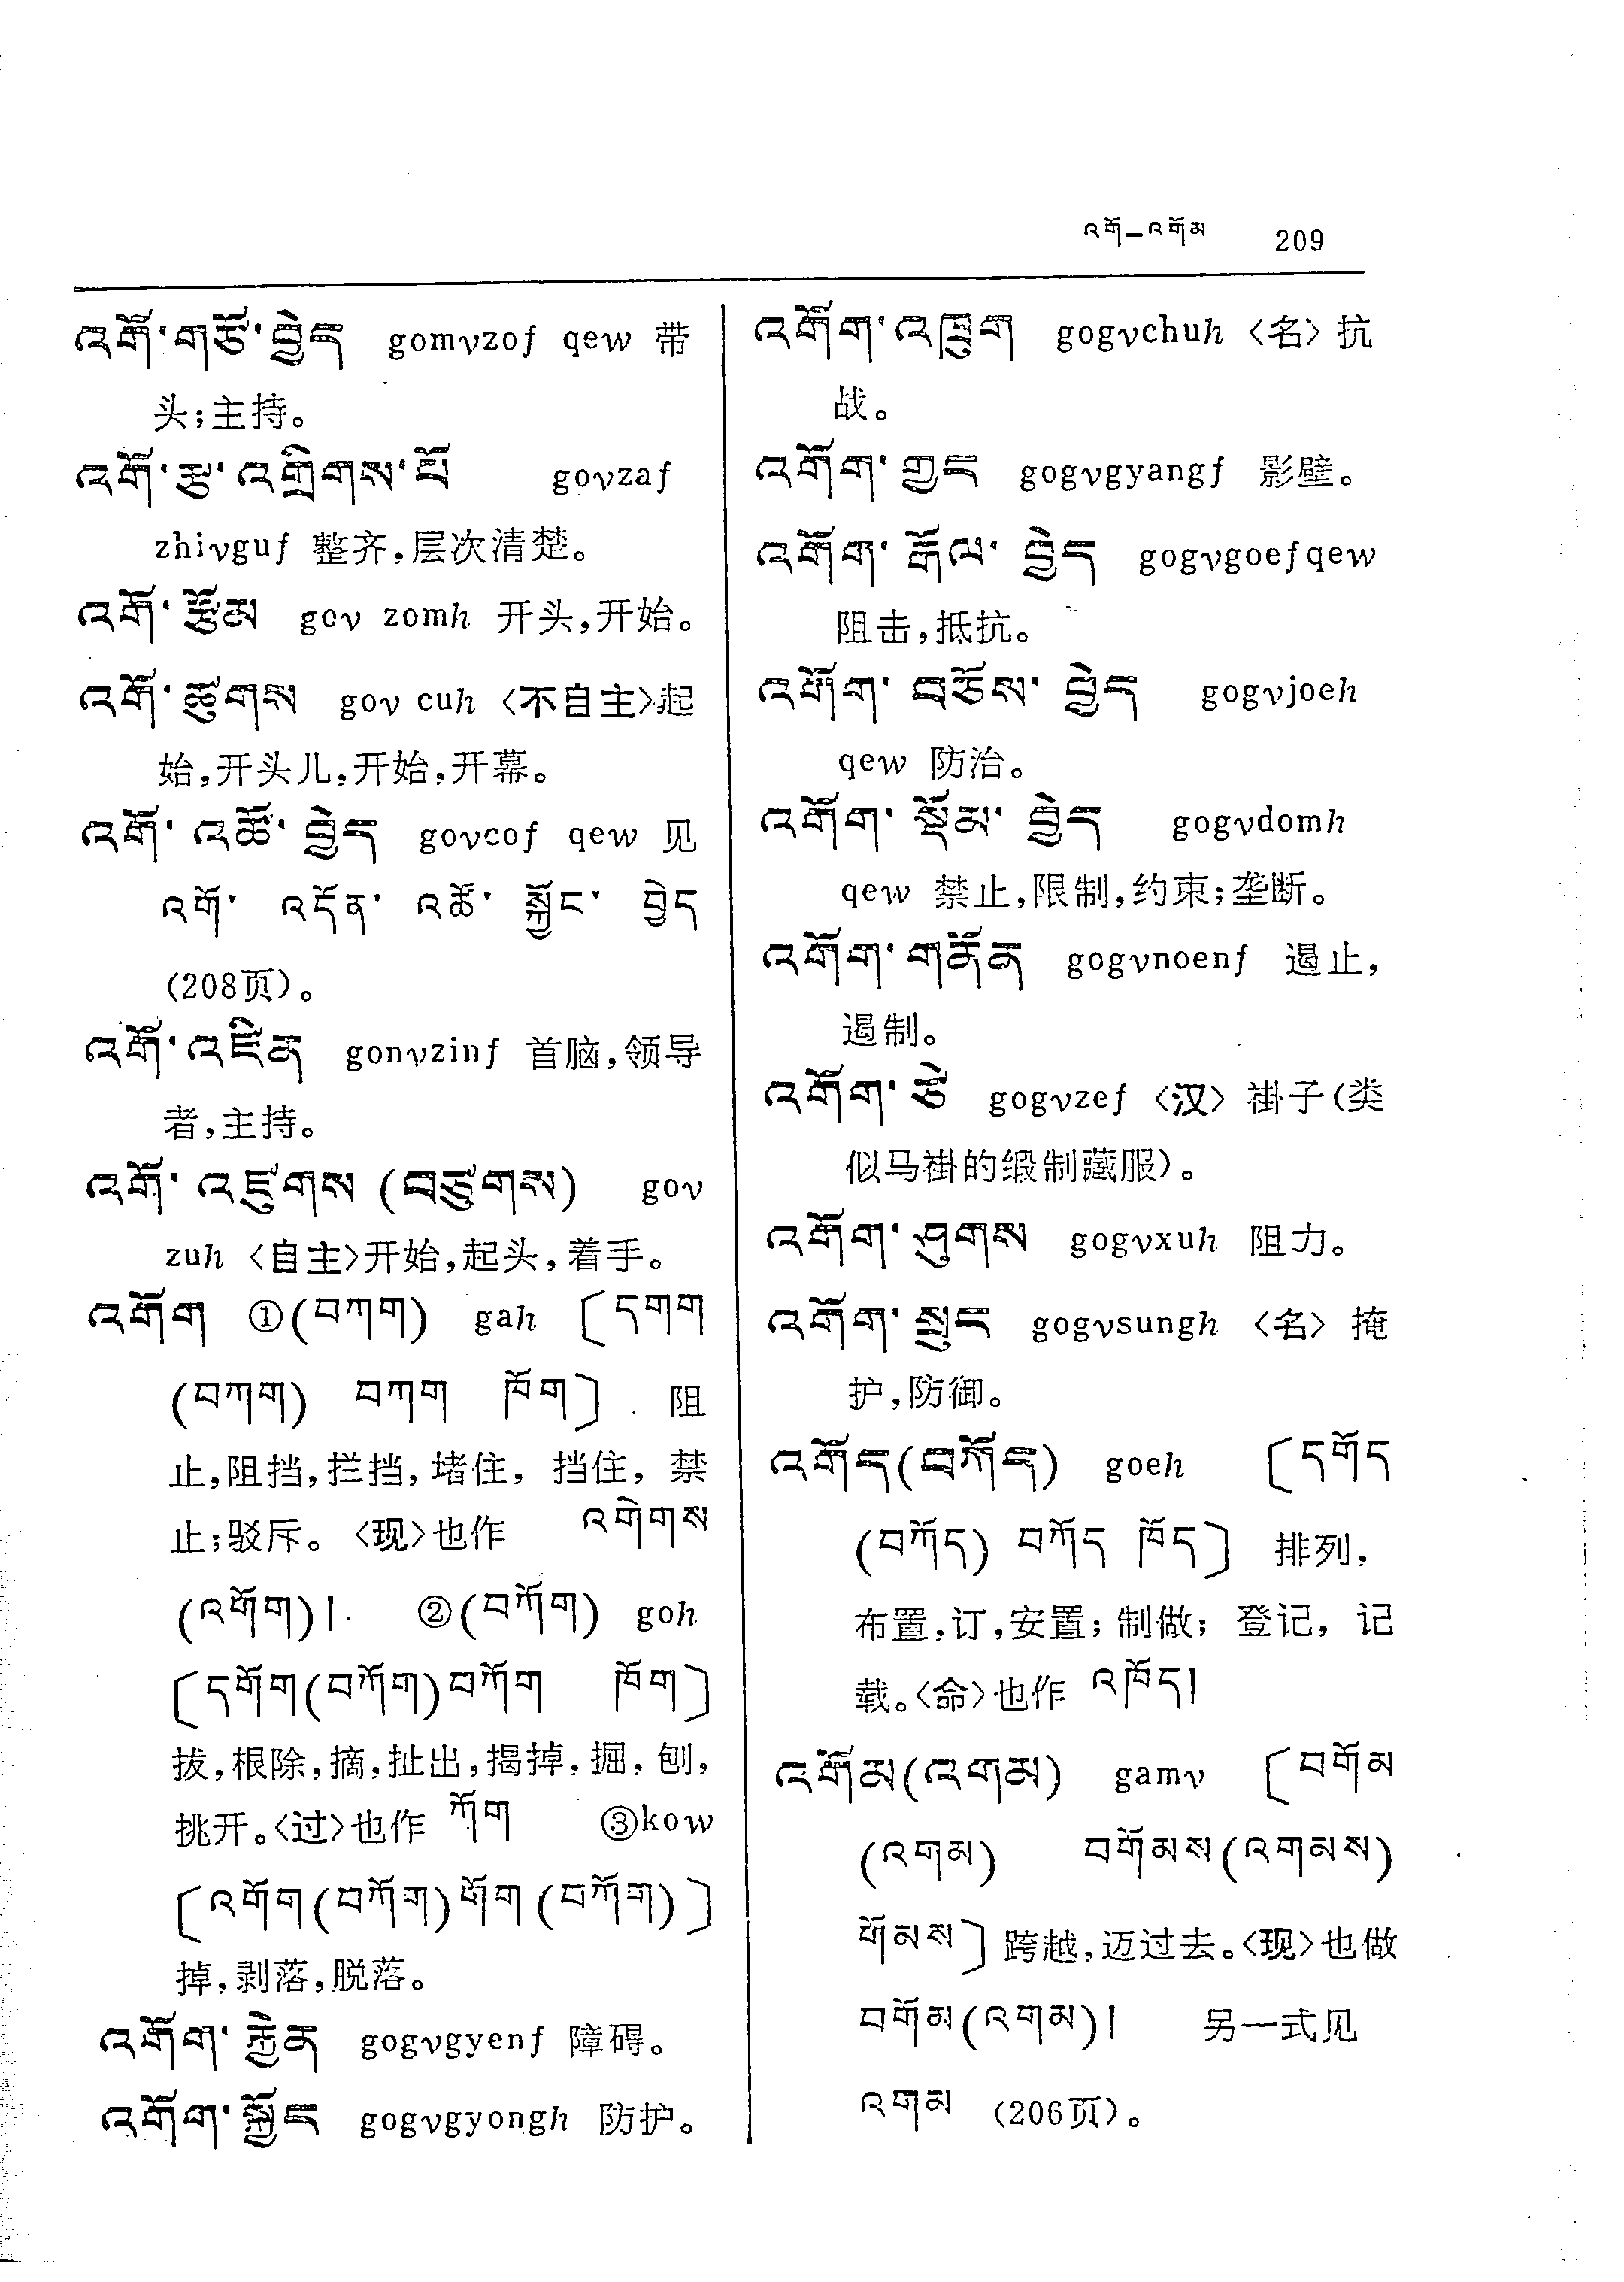 འགོ—འགོམ 209
འགོ་གཙོ་བྱེད gomvzof qew 带
头；主持。
འགོ་རྩ་འགྲིགས་པོ govzaf
zhivguf 整齐，层次清楚。
འགོ་རྩོམ gov zomh 开头，开始。
འགོ་ཚུགས gov cuh 〈不自主〉起
始，开头儿，开始，开幕。
འགོ་འཚོ་བྱེད govcof qew 见
འགོ་ འདོན་ འཚོ་ སྐྱོང་ བྱེད
(208页)。
འགོ་འཛིན gonvzinf 首脑，领导
者，主持。
འགོ་འཛུགས (བཙུགས) gov
zuh 〈自主〉开始，起头，着手。
འགོག ①(བཀག) gah 〔དགག
(བཀག) བཀག ཁོག〕 阻
止，阻挡，拦挡，堵住，挡住，禁
止；驳斥。〈现〉也作 འགེགས
(འགོག)། ②(བཀོག) goh
〔དགོག(བཀོག)བཀོག ཁོག〕
拔，根除，摘，扯出，揭掉，掘，刨，
挑开。〈过〉也作 ཀོག ③kow
〔འགོག(བཀོག)གོག(བཀོག)〕
掉，剥落，脱落。
འགོག་རྐྱེན gogvgyenf 障碍。
འགོག་སྐྱོང gogvgyongh 防护。
འགོག་འཁྲུག gogvchuh 〈名〉抗
战。
འགོག་གྱང gogvgyangf 影壁。
འགོག་རྒོལ་བྱེད gogvgoefqew
阻击，抵抗。
འགོག་བཅོས་བྱེད gogvjoeh
qew 防治。
འགོག་སྡོམ་བྱེད gogvdomh
qew 禁止，限制，约束；垄断。
འགོག་གནོན gogvnoenf 遏止，
遏制。
འགོག་ཙེ gogvzef 〈汉〉褂子(类
似马褂的缎制藏服)。
འགོག་ཤུགས gogvxuh 阻力。
འགོག་སྲུང gogvsungh 〈名〉掩
护，防御。
འགོད(བཀོད) goeh 〔དགོད
(བཀོད) བཀོད ཁོད〕 排列，
布置，订，安置；制做；登记，记
载。〈命〉也作 འཁོད།
འགོམ(འགམ) gamv 〔བགོམ
(འགམ) བགོམས(འགམས)
གོམས〕跨越，迈过去。〈现〉也做
བགོམ(འགམ)། 另一式见
འགམ (206页)。